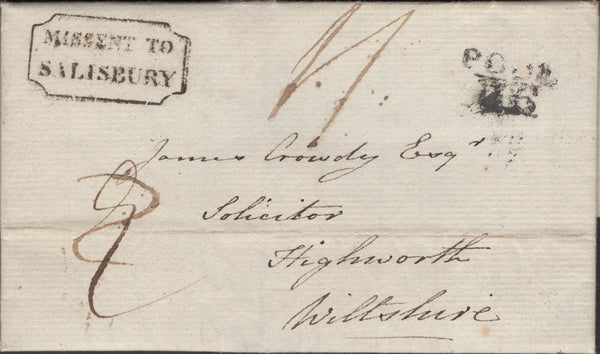 MISSENT TO
SALISBURY
POOLE
James Crowdy Esqr
Solicitor
Highworth
Wiltshire